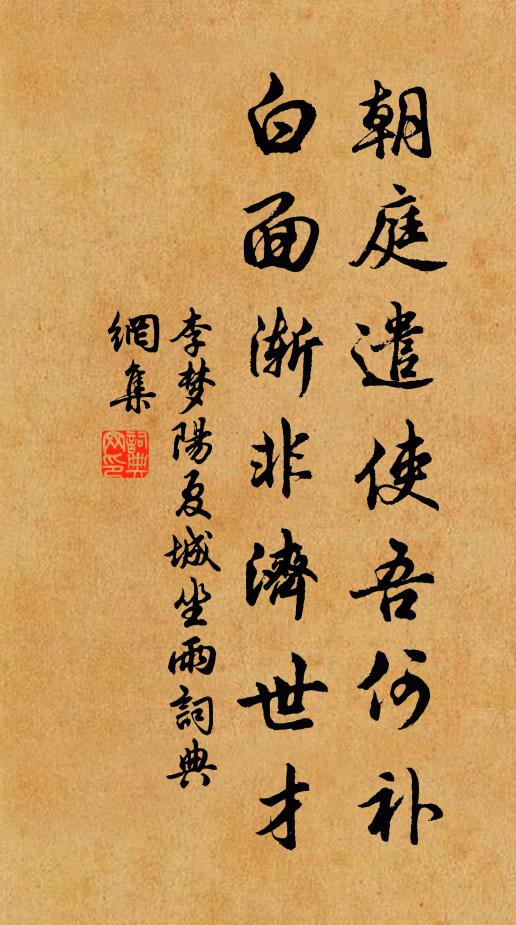 朝庭遣使吾何补
白面渐非濟世才
李梦陽夏城坐雨詞典
網集
詞典网印